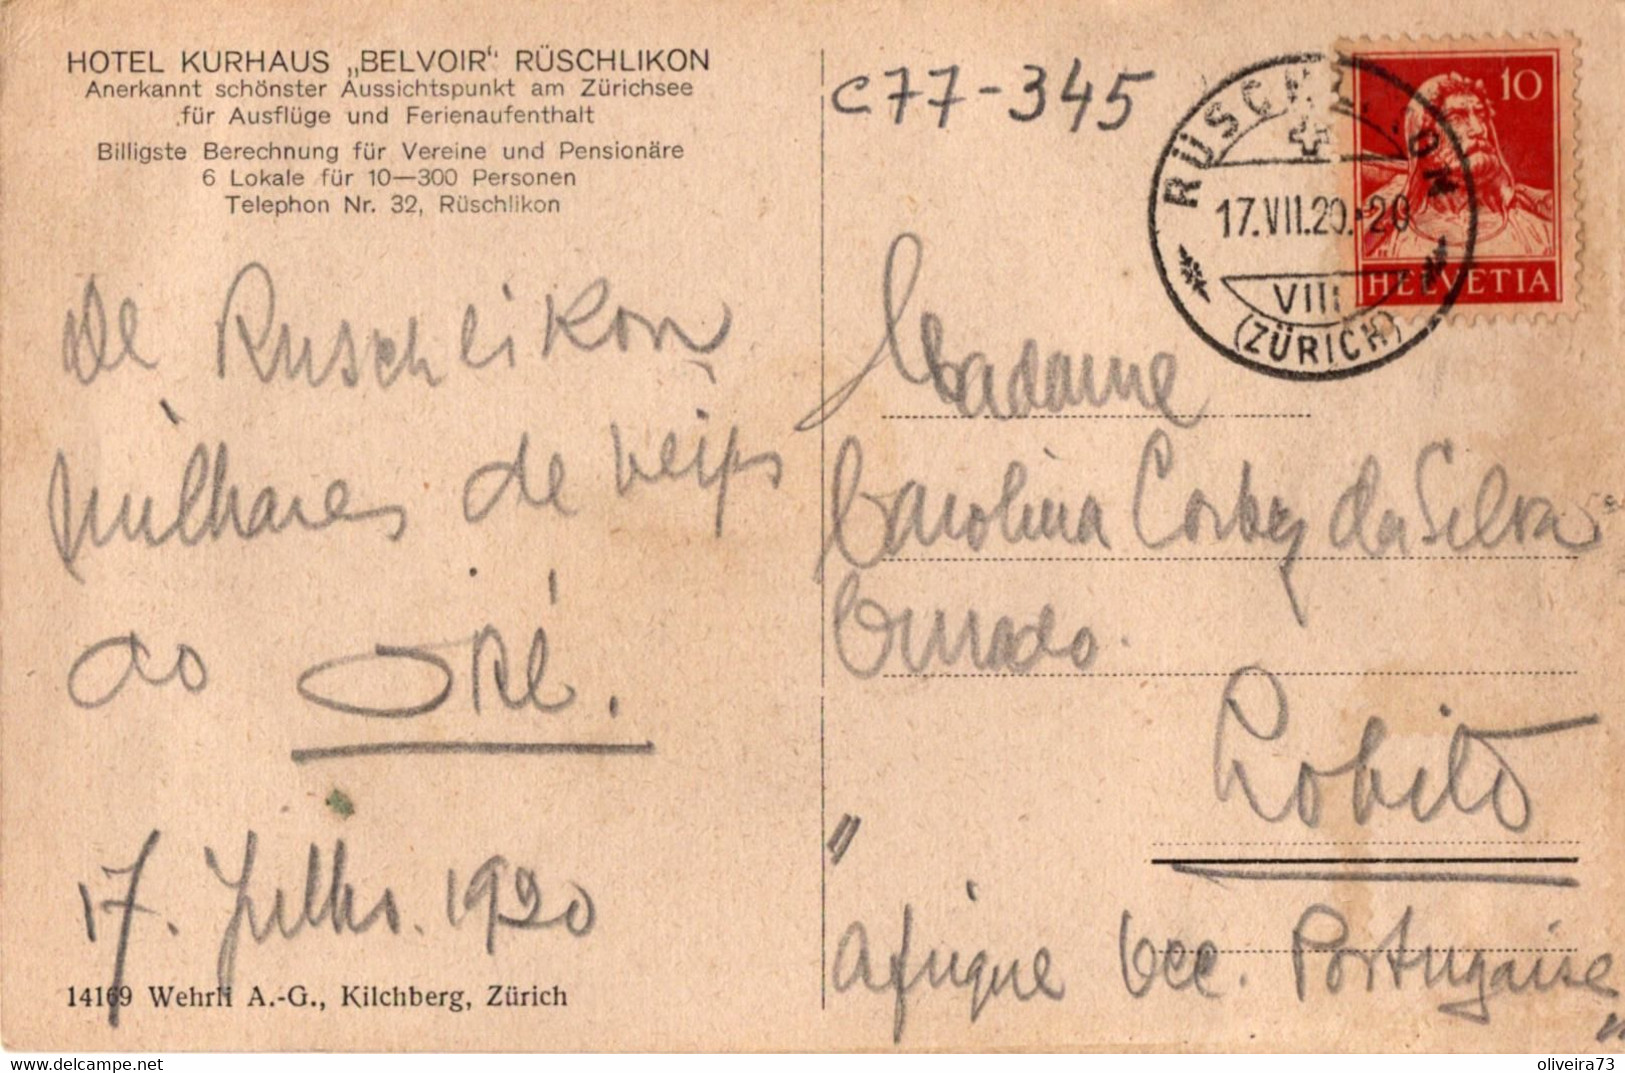 HOTEL KURHAUS „BELVOIR“ RÜSCHLIKON
Anerkannt schönster Aussichtspunkt am Zürichsee
für Ausflüge und Ferienaufenthalt
Billigste Berechnung für Vereine und Pensionäre
6 Lokale für 10—300 Personen
Telephon Nr. 32, Rüschlikon
De Ruschlikon
milhares de beijos
ao
17. Julho. 1920
14169 Wehrli A.-G., Kilchberg, Zürich
c77-345
RÜSCHLIKON
17.VII.20.-20
VIII
(ZÜRICH)
10
HELVETIA
Madame
Carolina da Silva
Lobito
"Afrique Occ. Portugaise"
oliveira73